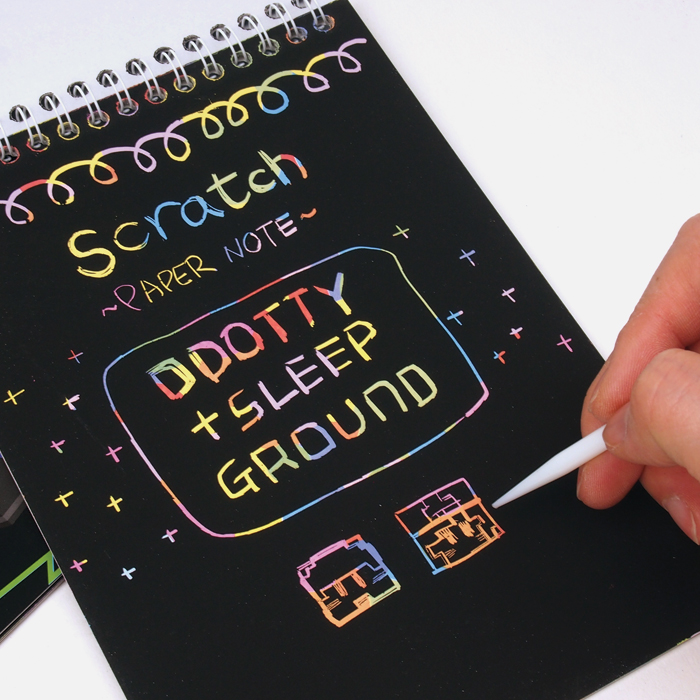 Scratch
~PAPER NOTE~
DDOTTY
+SLEEP
GROUND